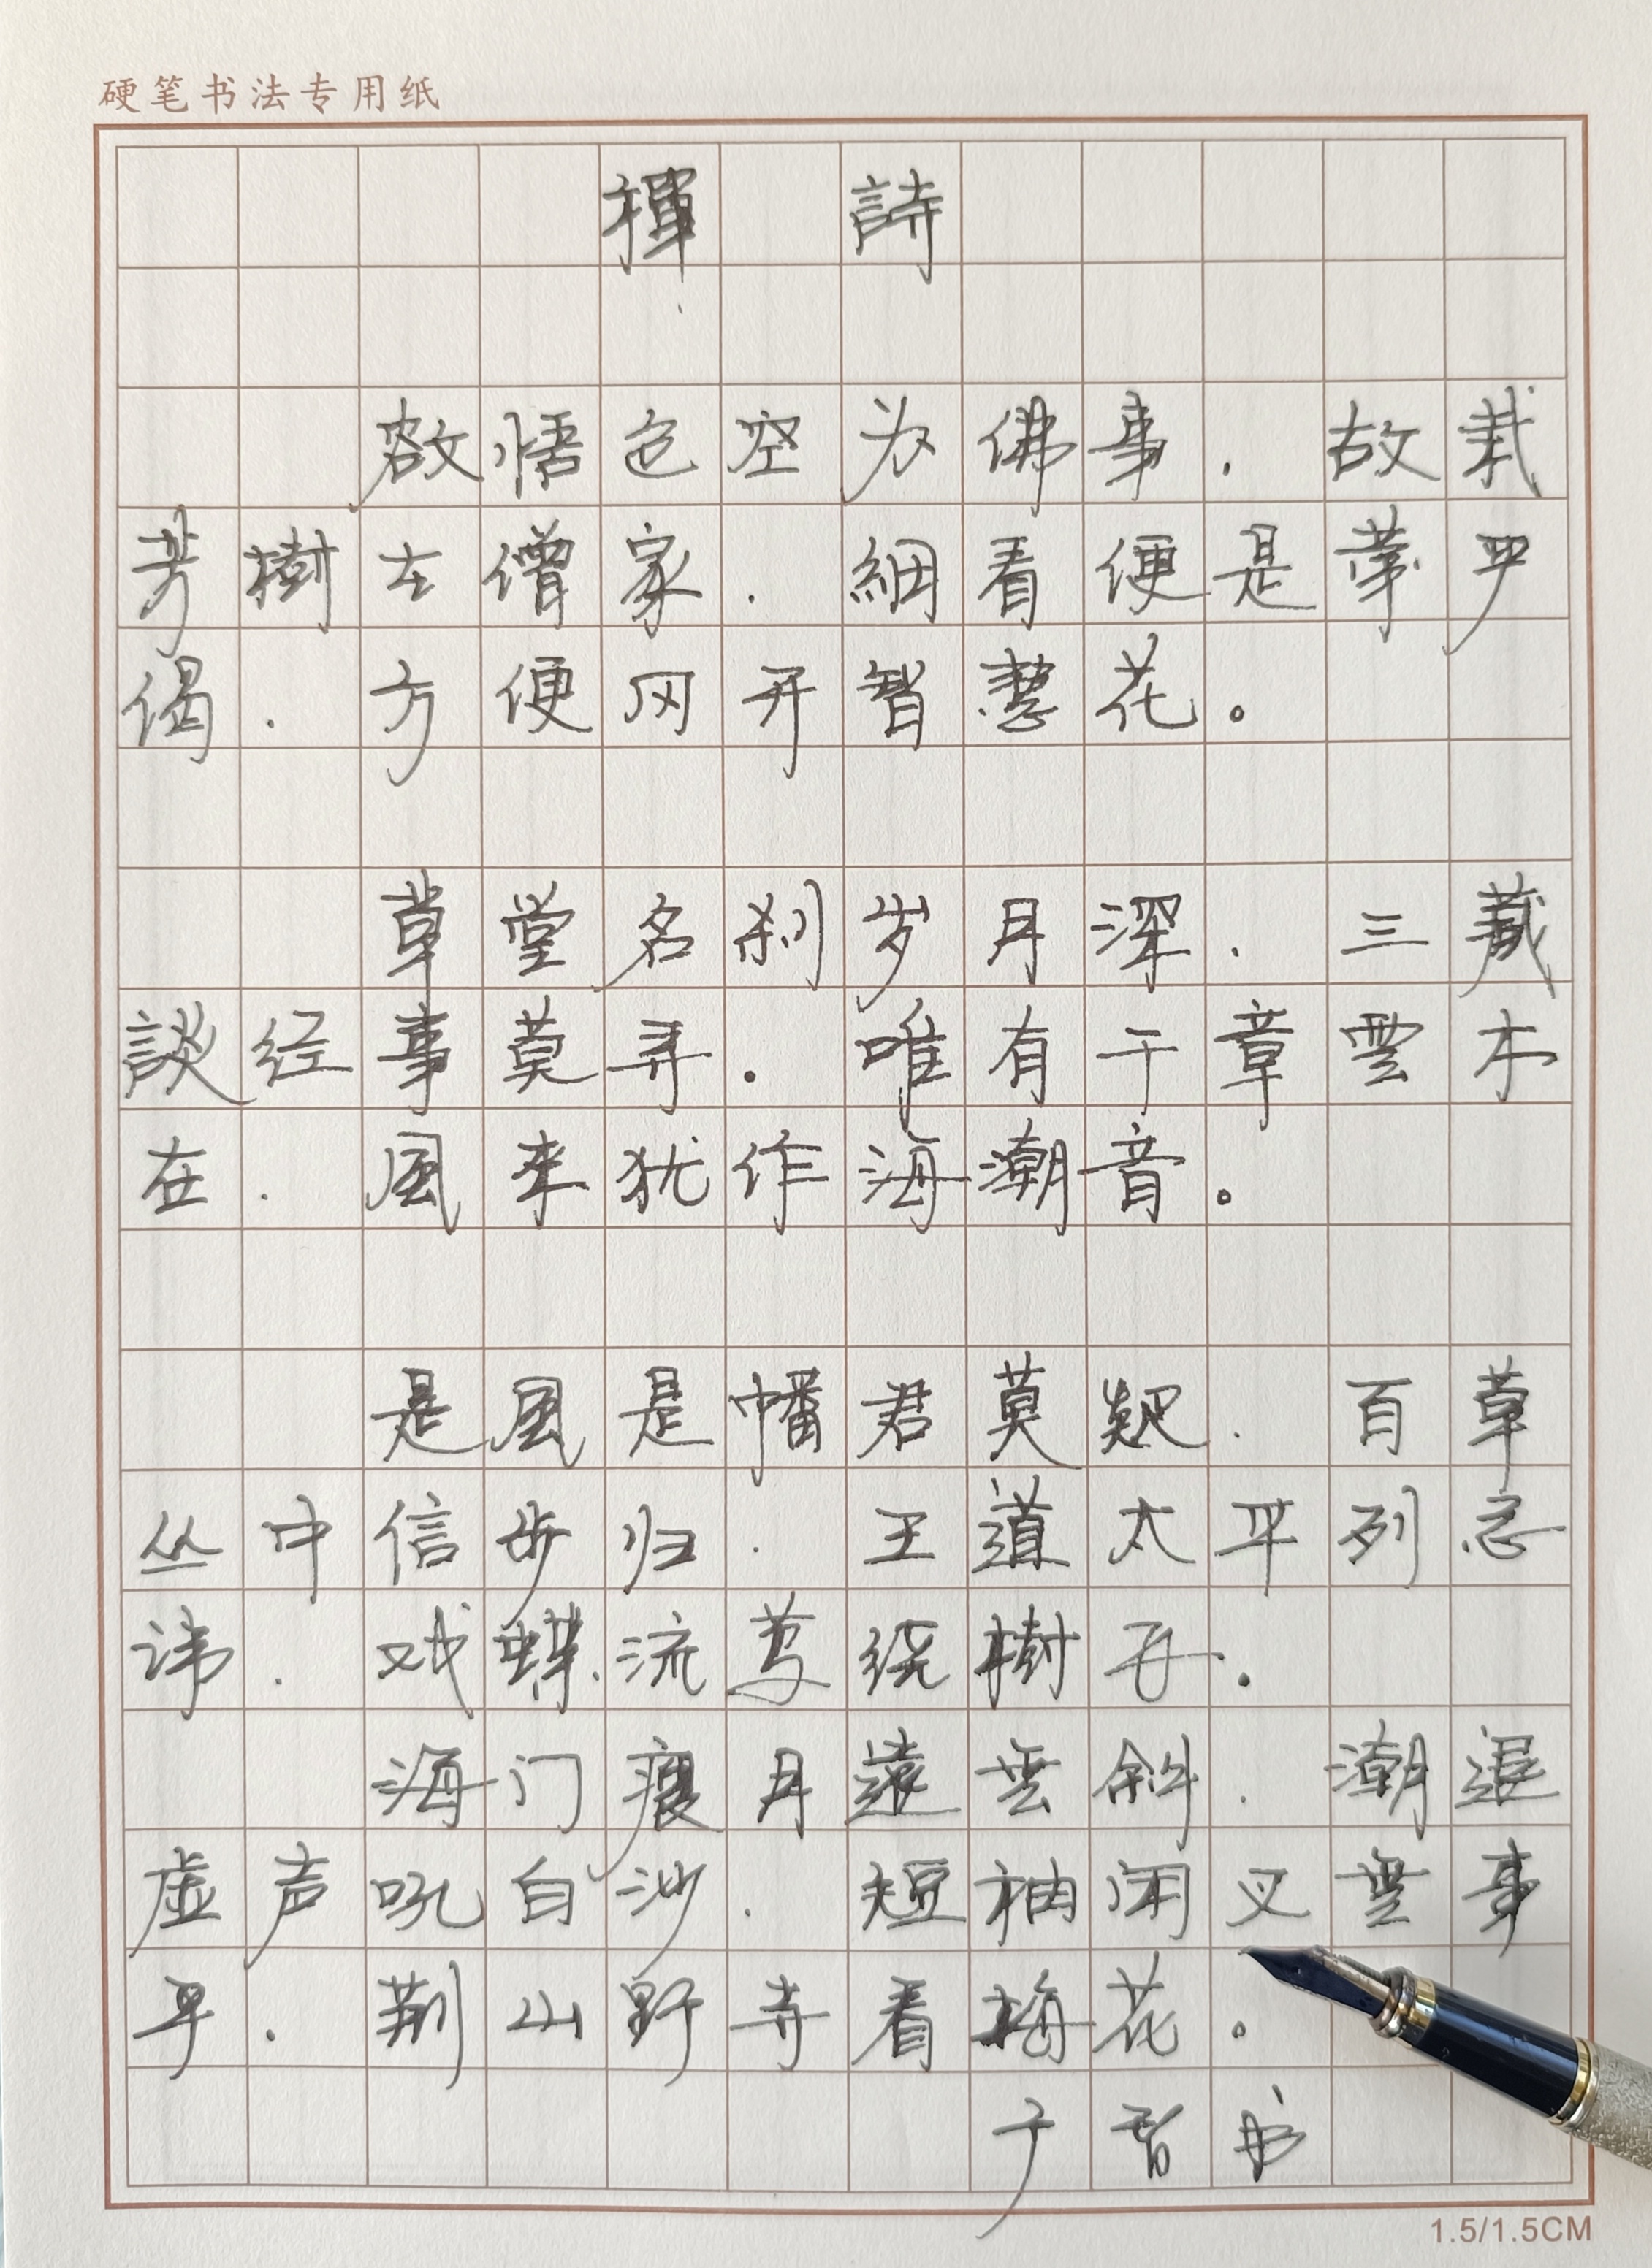 硬笔书法专用纸
禪 詩
欲悟色空为佛事．故栽
芳樹在僧家．細看便是華严
偈．方便风开智慧花。
草堂名刹岁月深．三藏
談经事莫寻．唯有千章雲木
在．風来犹作海潮音。
是風是幡君莫疑．百草
丛中信步归．王道太平列忌
讳．戏蝶流莺绕樹飞．
海门瘦月遠雲斜．潮退
虚声吼白沙．短袖闲叉無事
手．荆山野寺看梅花。
于智书
1.5/1.5CM